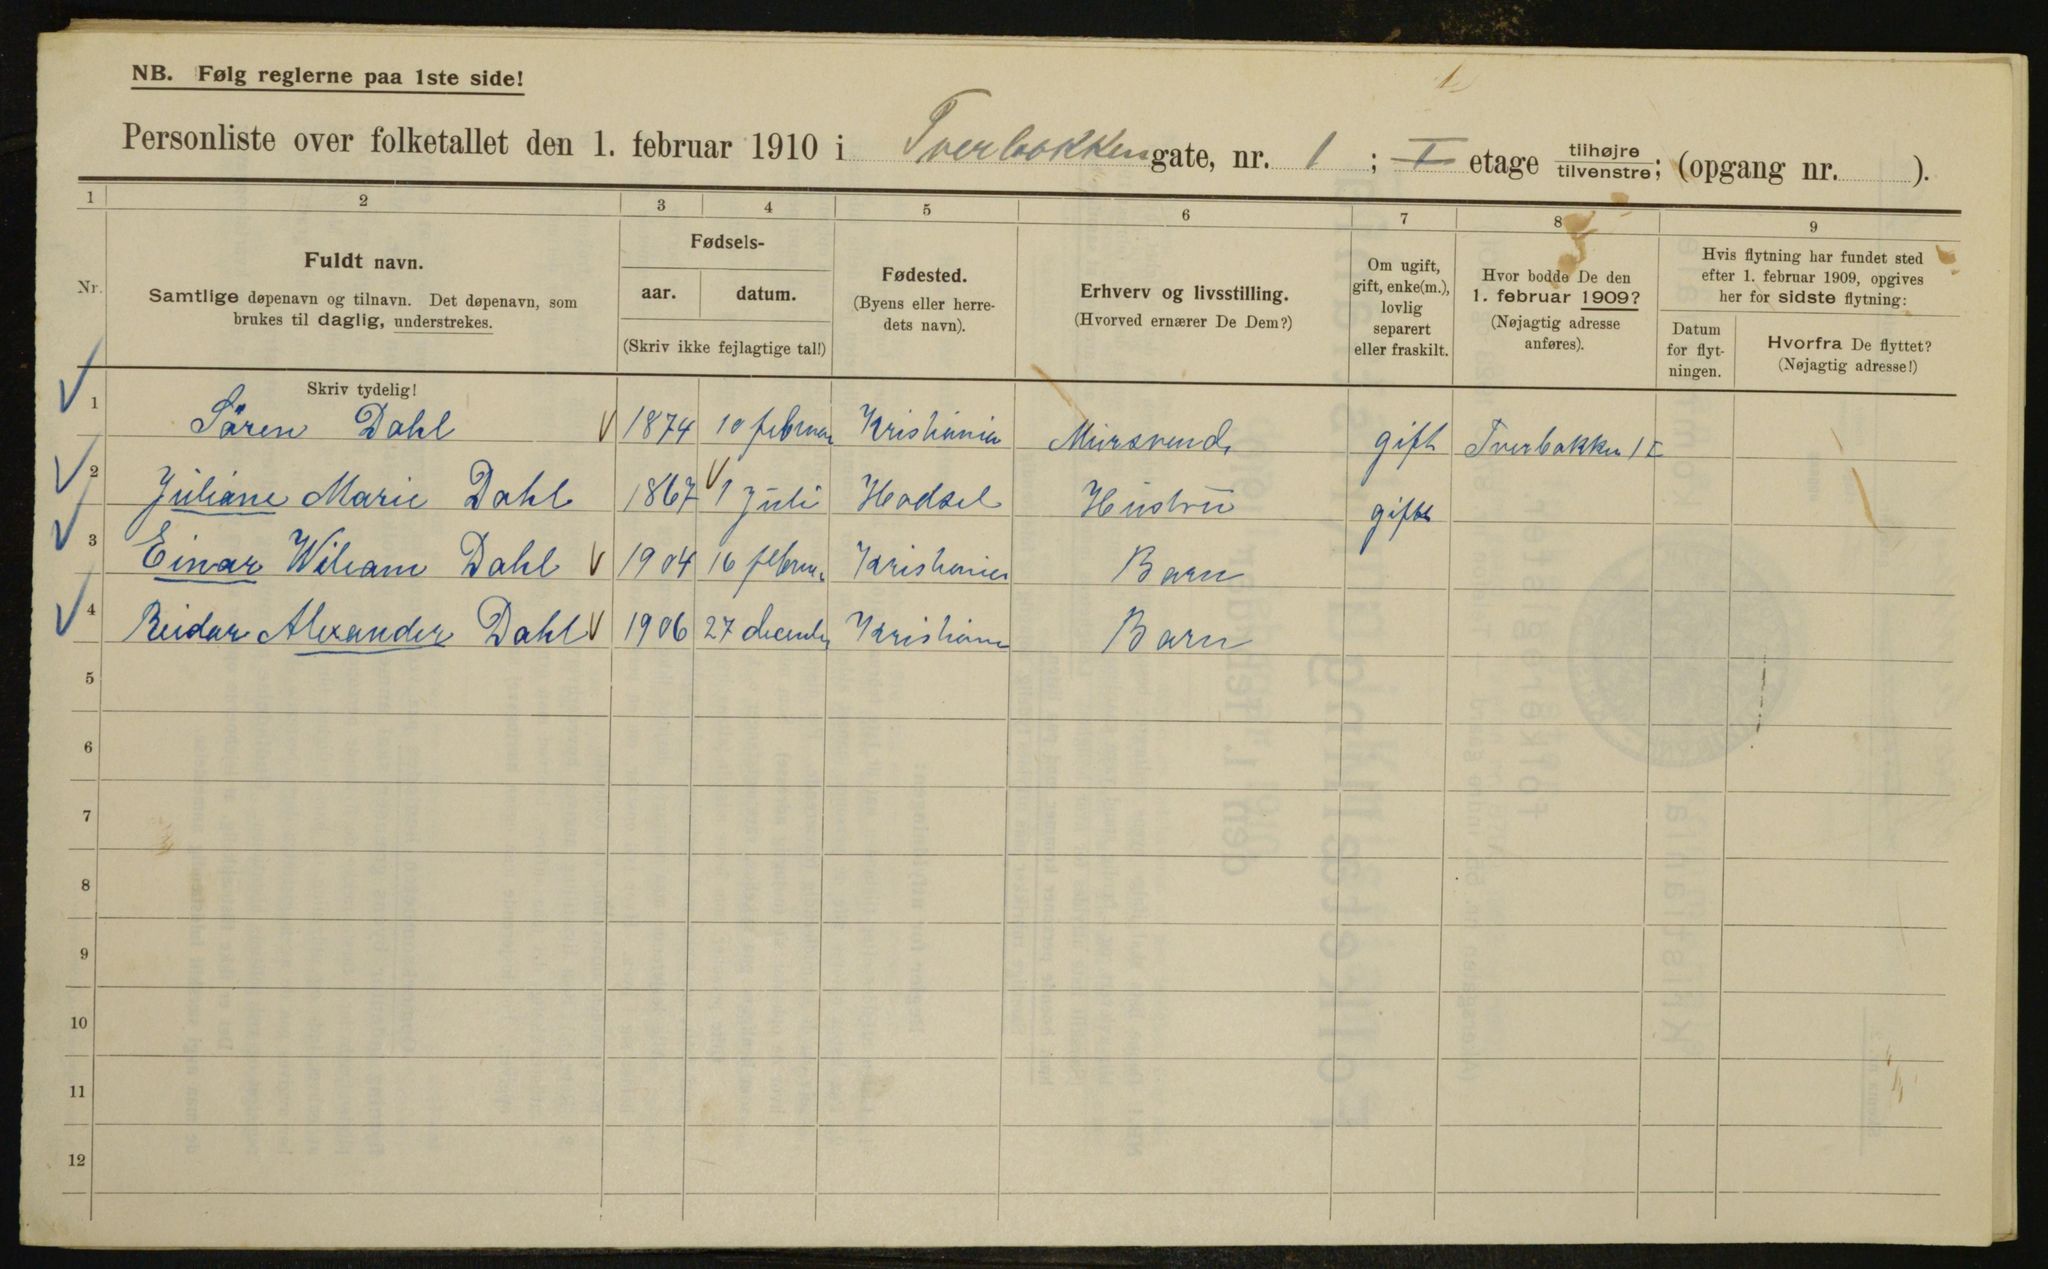 NB. Følg reglerne paa 1ste side!
Personliste over folketallet den 1. februar 1910 i Tverbakken gate, nr. 1 ; I etage tilhøjre tilvenstre; (opgang nr. ).
1 2 3 4 5 6 7 8 9
Nr.
Fuldt navn.
Samtlige døpenavn og tilnavn. Det døpenavn, som
brukes til daglig, understrekes.
Fødsels-
aar. datum.
(Skriv ikke fejlagtige tal!)
Fødested.
(Byens eller herre-
dets navn).
Erhverv og livsstilling.
(Hvorved ernærer De Dem?)
Om ugift,
gift, enke(m.),
lovlig
separert
eller fraskilt.
Hvor bodde De den
1. februar 1909?
(Nøjagtig adresse
anføres).
Hvis flytning har fundet sted
efter 1. februar 1909, opgives
her for sidste flytning:
Datum
for flyt-
ningen.
Hvorfra De flyttet?
(Nøjagtig adresse!)
Skriv tydelig!
1 Sören Dahl 1874 10 februar Kristiania Mursvend gift Tverbakken 1 I
2 Juliane Marie Dahl 1867 1 juli Hadsel Hustru gift
3 Einar Wiliam Dahl 1904 16 februar Kristiania Barn
4 Reidar Alexander Dahl 1906 27 december Kristiania Barn
5
6
7
8
9
10
11
12